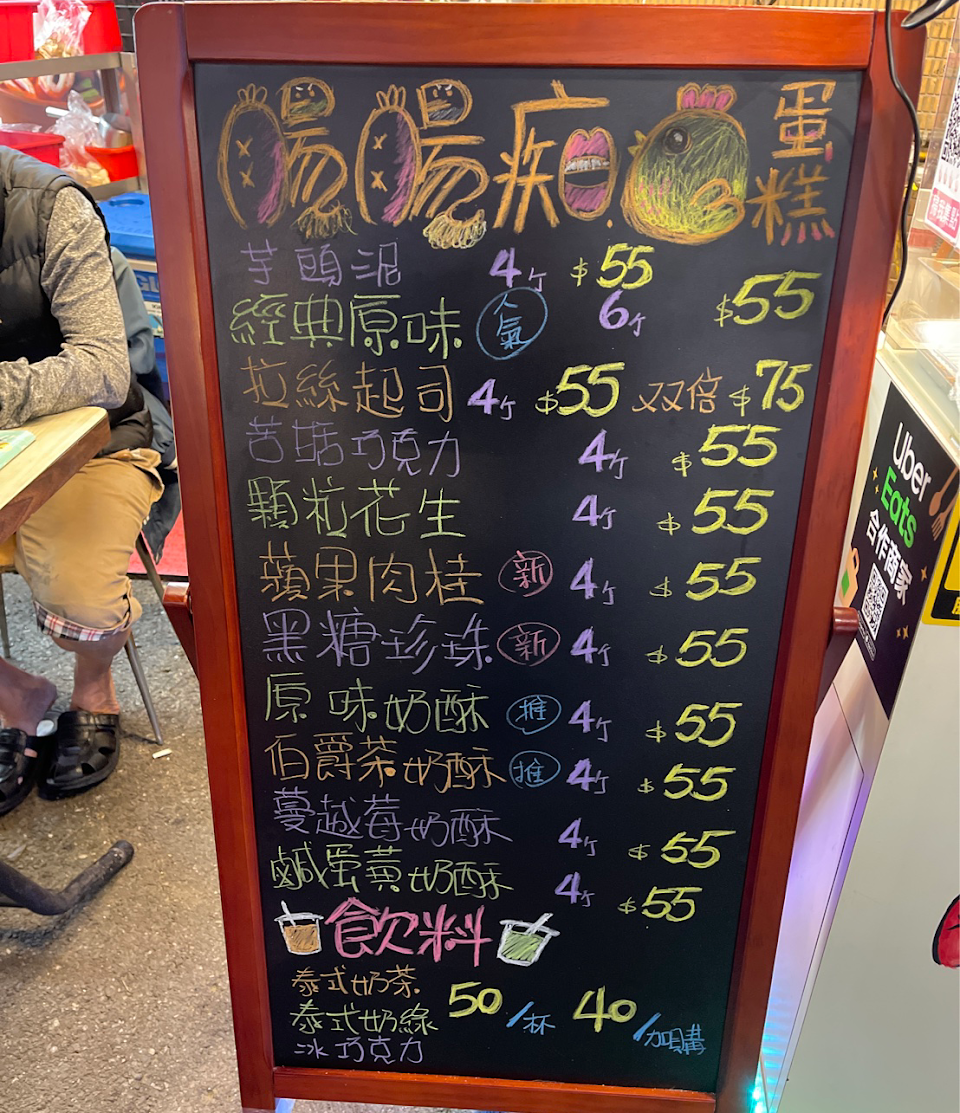 腸腸痴蛋糕
芋頭泥 4个 $55
經典原味 人氣 6个 $55
拉絲起司 4个 $55 双倍 $75
苦甜巧克力 4个 $55
顆粒花生 4个 $55
蘋果肉桂 新 4个 $55
黑糖珍珠 新 4个 $55
原味奶酥 推 4个 $55
伯爵茶奶酥 推 4个 $55
蔓越莓奶酥 4个 $55
鹹蛋黃奶酥 4个 $55
飲料
泰式奶茶
泰式奶綠 50/杯 40/加購
冰巧克力
Uber
Eats
合作商家